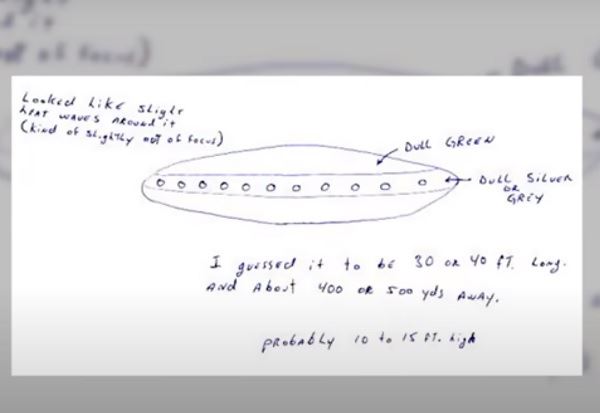 Looked Like slight
heat waves around it
(kind of slightly out of focus)
Dull GREEN
Dull SILVER
OR
GREY
I guessed it to be 30 or 40 ft. Long.
And About 400 or 500 yds Away.
probably 10 to 15 ft. high